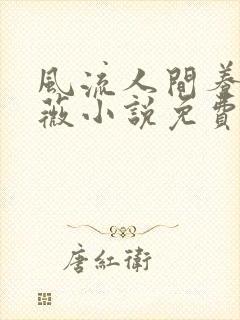 風流人間養
薇小説免費
唐紅衛